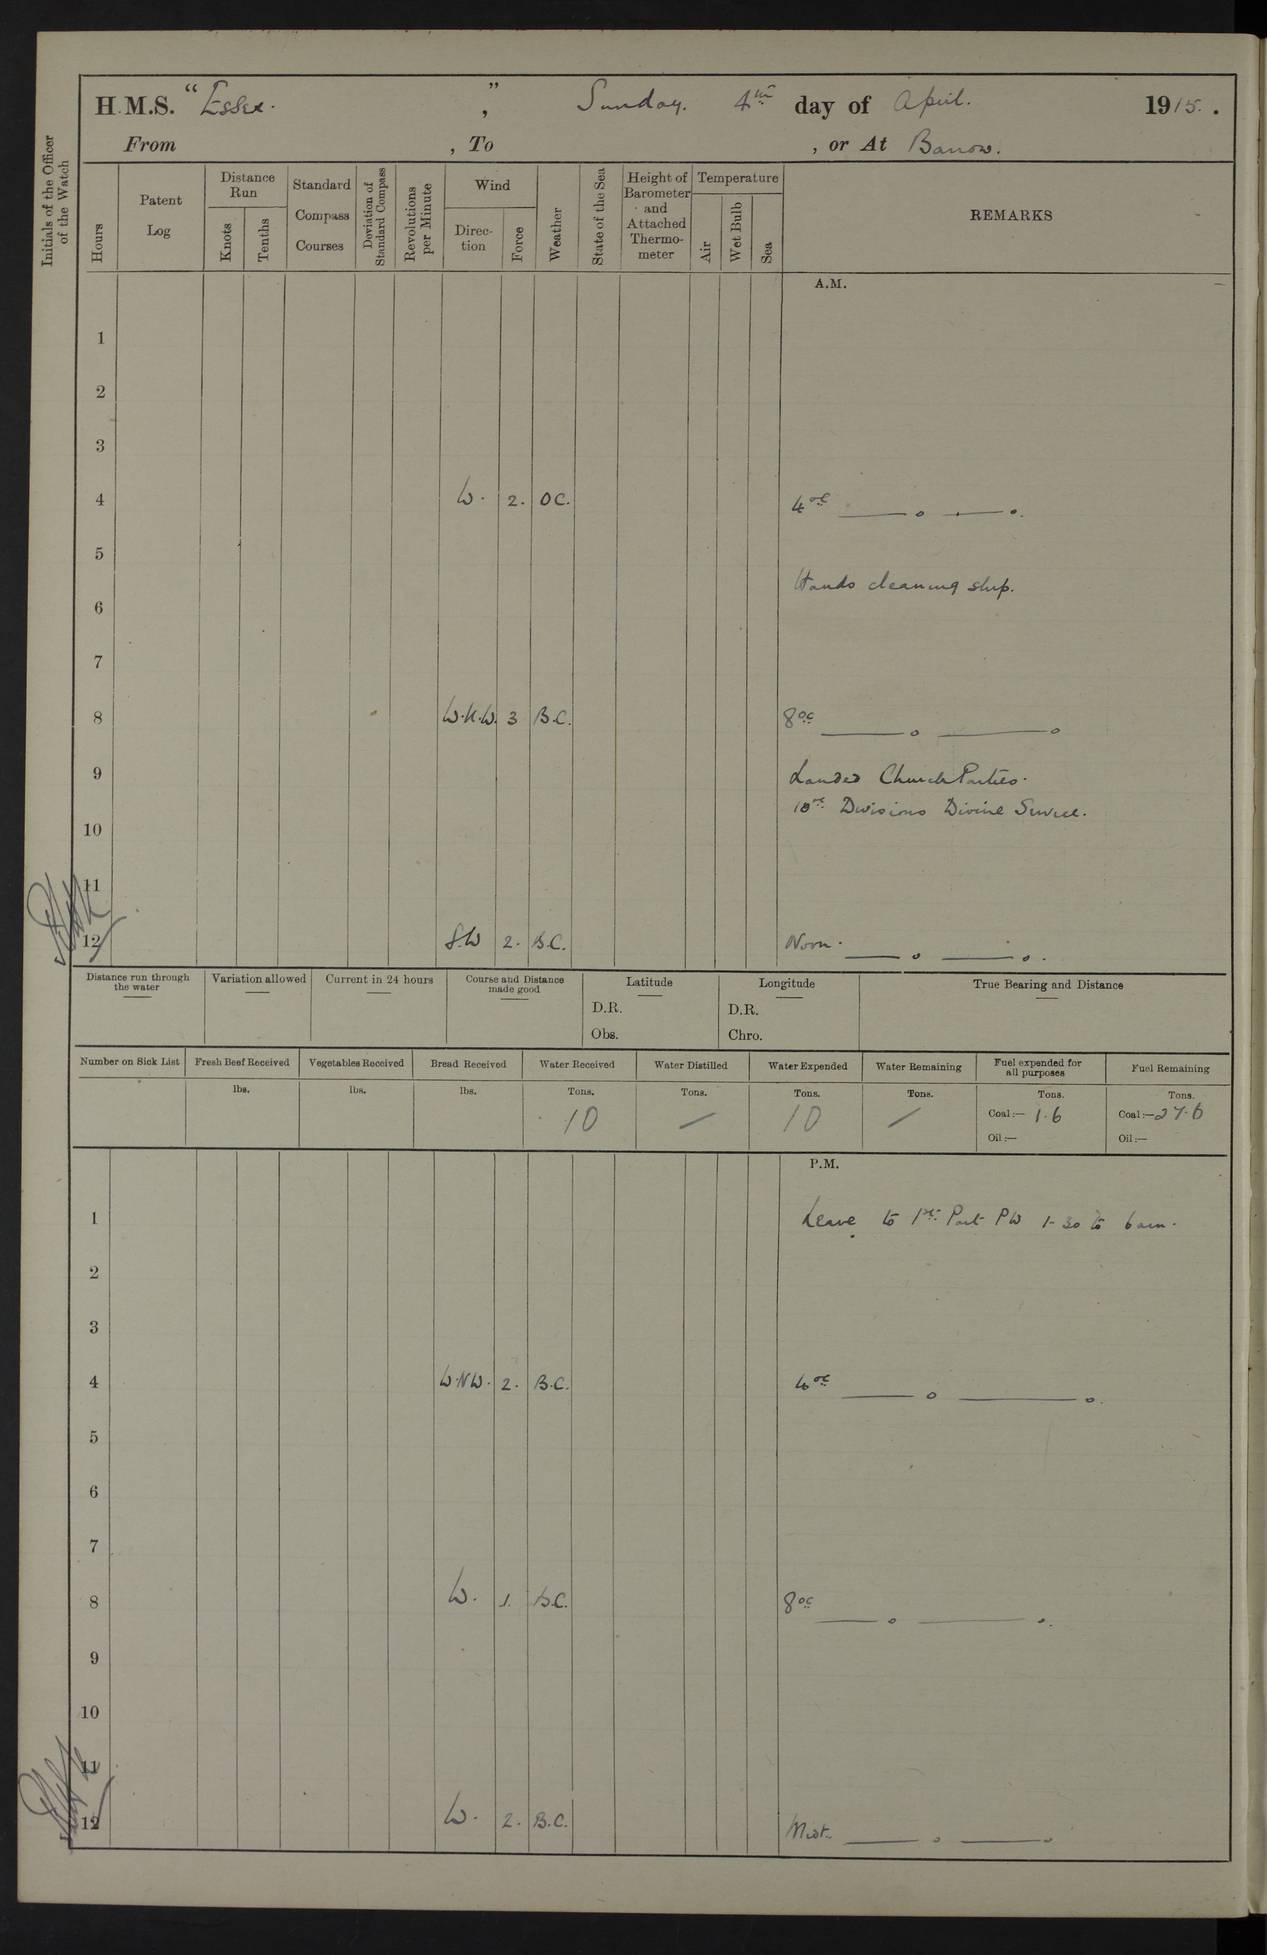 H.M.S. "Essex." , Sunday. 4th day of April. 1915.
From , To , or At Barrow.
Initials of the Officer of the Watch
Hours
Patent Log
Distance Run
Knots
Tenths
Standard Compass Courses
Deviation of Standard Compass
Revolutions per Minute
Wind
Direction
Force
Weather
State of the Sea
Height of Barometer and Attached Thermometer
Temperature
Air
Wet Bulb
Sea
REMARKS
A.M.
1
2
3
4 W. 2. O C. 4 oc —— o —— o.
5
Hands cleaning ship.
6
7
8 W.N.W. 3 B.C. 8 oc —— o —— o
9 Landed Church Parties.
10 oc Divisions Divine Service.
10
11
12 S.W 2. B.C. Noon. —— o —— o.
Distance run through the water
Variation allowed
Current in 24 hours
Course and Distance made good
Latitude
D.R.
Obs.
Longitude
D.R.
Chro.
True Bearing and Distance
Number on Sick List Fresh Beef Received Vegetables Received Bread Received Water Received Water Distilled Water Expended Water Remaining Fuel expended for all purposes Fuel Remaining
lbs. lbs. lbs. Tons. Tons. Tons. Tons. Tons. Tons.
10 — 10 — Coal:— 1.6 Coal:— 27.6
Oil:— Oil:—
P.M.
1 Leave to 1st Part PW 1-30 to 6 am.
2
3
4 W.N.W. 2. B.C. 4 oc —— o —— o.
5
6
7
8 W. 1. B.C. 8 oc —— o —— o.
9
10
11
12 W. 2. B.C. Midt. —— o —— o